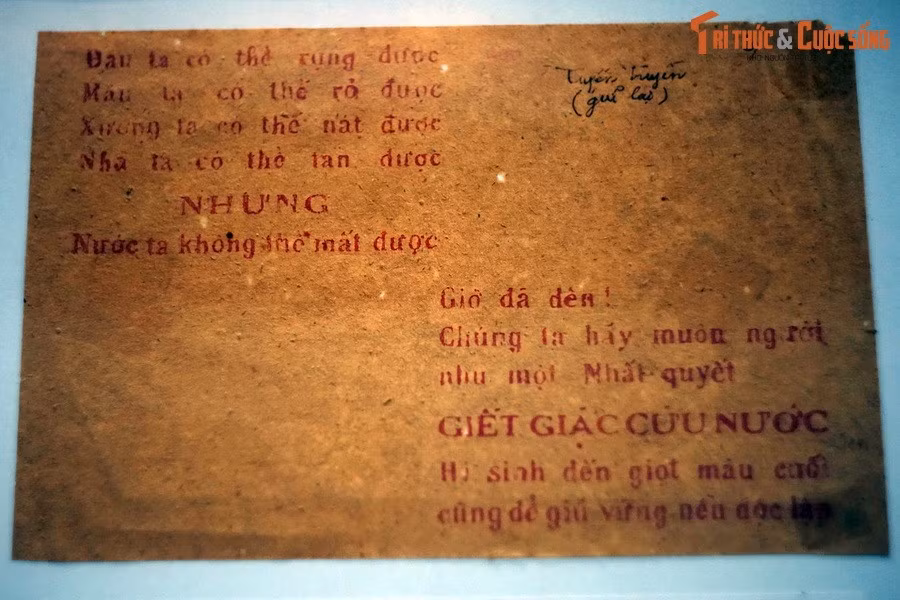 TRI THỨC & CUỘC SỐNG
Đầu ta có thể rụng được
Máu ta có thể rỏ được
Xương ta có thể nát được
Nhà ta có thể tan được
NHƯNG
Nước ta không thể mất được
Tuyên truyền
(gửi lại)
Giờ đã đến!
Chúng ta hãy muôn người
như một Nhất quyết
GIẾT GIẶC CỨU NƯỚC
Hi sinh đến giọt máu cuối
cùng để giữ vững nền độc lập